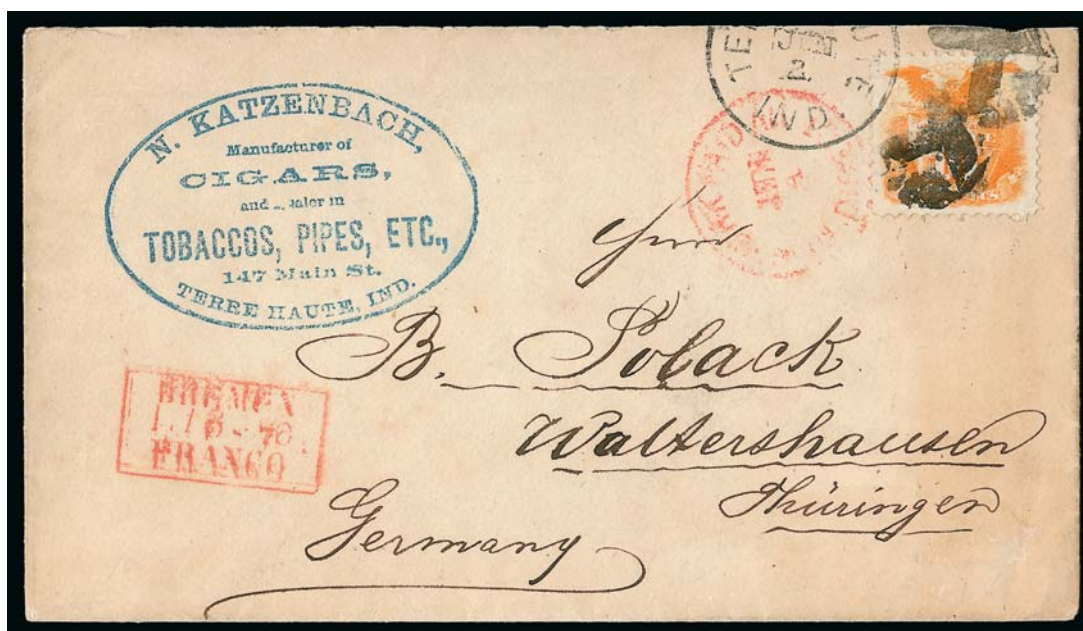 N. KATZENBACH,
Manufacturer of
CIGARS,
and
in
TOBACCOS, PIPES, ETC.,
147 Main St.
TERRE HAUTE, IND.
JUN
2
IND.
PAID
BREMEN
FRANCO
Herrn
B. Polack
Waltershausen
Thüringen
Germany